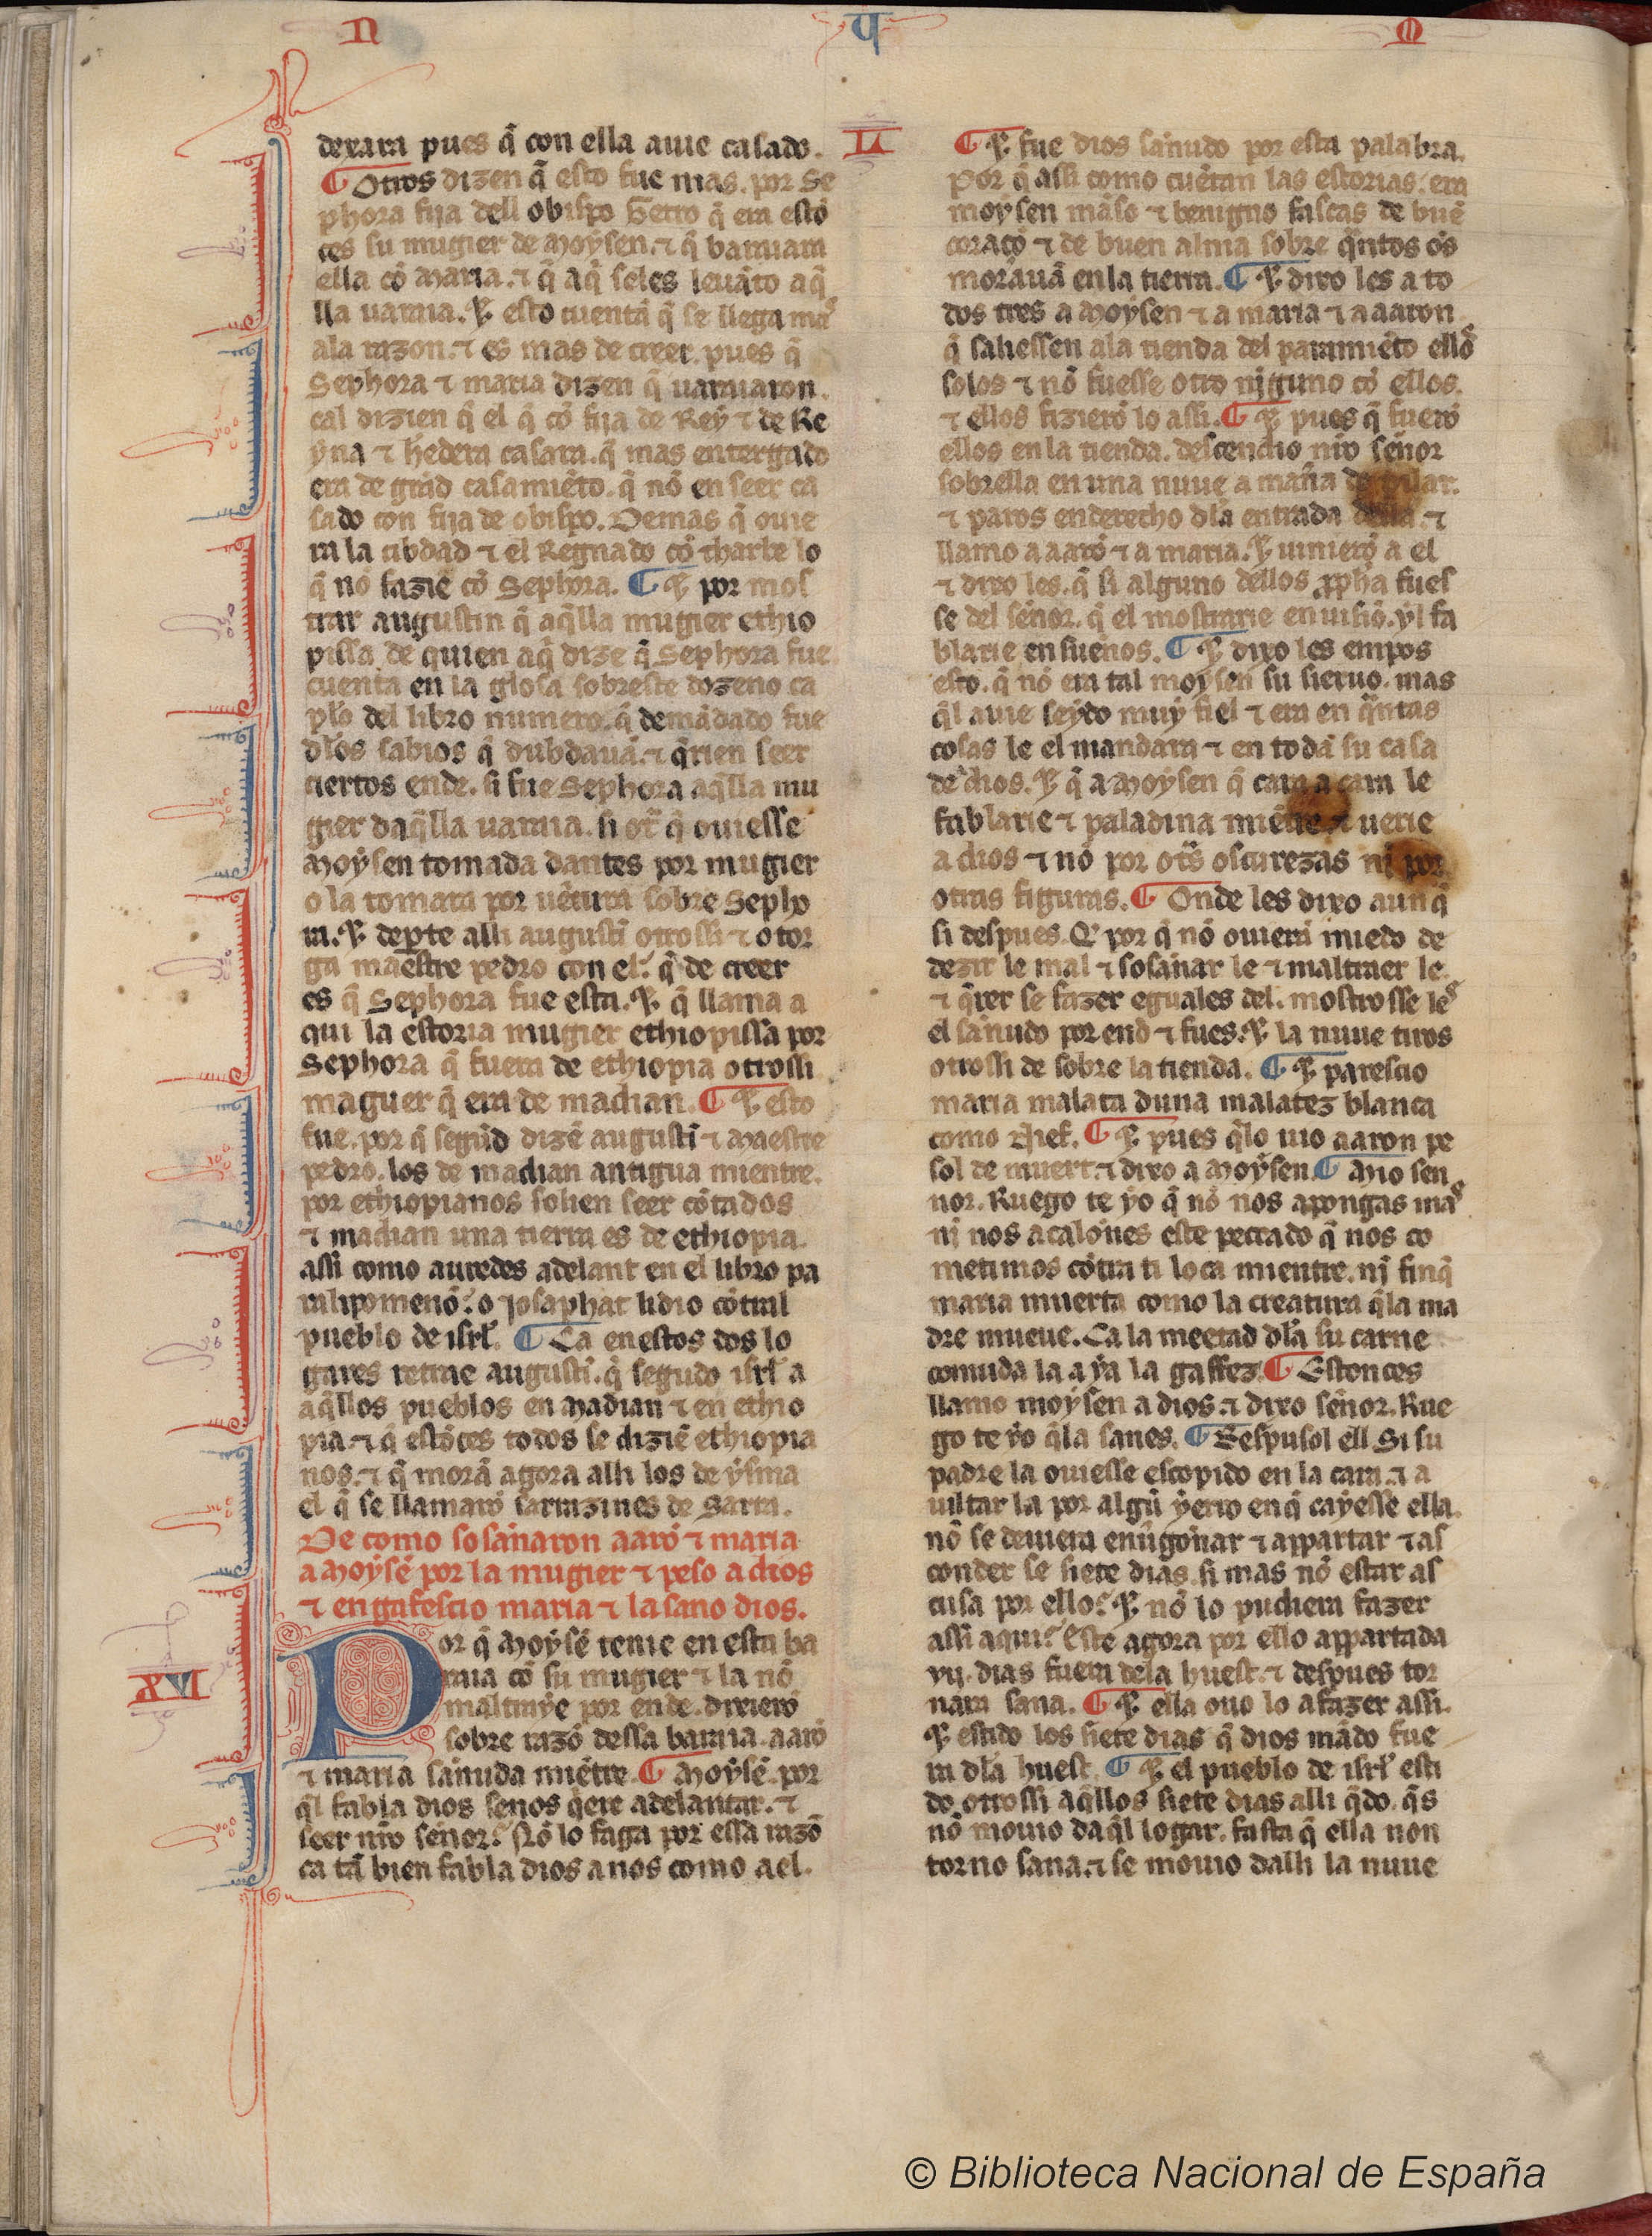 N
U
O
dexara pues q̃ con ella auie casado.
¶ Otros dizen q̃ esto fue mas. por Se
phora fija dell obispo Getro q̃ era estõ
ces su mugier de Moysen. ⁊ q̃ baraiara
ella cõ Maria. ⁊ q̃ aq̃ seles leuãto aq̃
lla uaraia. E esto cuentã q̃ se llega mas
ala razon. ⁊ es mas de creer. pues q̃
Sephora ⁊ maria dizen q̃ uaraiaron.
cal dizien q̃ el q̃ cõ fija de Rey ⁊ de Re
yna ⁊ hedera casara. q̃ mas entergado
era de grãd casamiẽto. q̃ nõ en seer ca
sado con fija de obispo. Demas q̃ ouie
ra la cibdad ⁊ el Regnado cõ tharbe lo
q̃ nõ fazie cõ Sephora. ¶ E por mos
trar augustin q̃ aq̃lla mugier ethio
pissa de quien aq̃ dize q̃ Sephora fue
cuenta en la glosa sobreste dozeno ca
pl̃o del libro numero. q̃ demãdado fue
dl̃os sabios q̃ dubdauã. ⁊ q̃rien seer
ciertos ende. si fue Sephora aq̃lla mu
gier daq̃lla uaraia. si ot̃ q̃ ouiesse
Moysen tomada dantes por mugier
o la tomara por uẽtura sobre Sepho
ra. E dep̱te alli augustĩ otrossi ⁊ otor
ga maestre pedro con el. q̃ de creer
es q̃ Sephora fue esta. E q̃ llama a
qui la estoria mugier ethiopissa por
Sephora q̃ fuera de ethiopia otrossi
maguer q̃ era de madian. ¶ E esto
fue. por q̃ segũd dizẽ augustĩ ⁊ Maestre
pedro. los de madian antigua mientre.
por ethiopianos solien seer cõtados
⁊ madian una tierra es de ethiopia.
assi como auredes adelant en el libro pa
ralipomenõ. o Josaphat lidio cõtral
pueblo de isrl̃. ¶ Ca en estos dos lo
gares retrae augustĩ. q̃ segudo isrl̃ a
aq̃llos pueblos en Madian ⁊ en ethio
pia. ⁊ q̃ estõces todos se diziẽ ethiopia
nos. ⁊ q̃ morã agora alli los de ysma
el q̃ se llamarõ sarrazines de Sarra.
De como sosañaron aarõ ⁊ maria
a Moysẽ por la mugier ⁊ peso a dios
⁊ engafescio maria ⁊ la sano dios.
XVI
Por q̃ Moysẽ tenie en esta ba
raia cõ su mugier ⁊ la nõ
maltraye por ende. dixierõ
sobre razõ dessa baraia. aarõ
⁊ maria sañuda miẽtre. ¶ Moysẽ. por
q̃l fabla dios senos q̃ere adelantar. ⁊
seer nr̃o señor. Nõ lo faga por essa razõ
ca tã bien fabla dios a nos como a el.
LI
¶ E fue dios sañudo por esta palabra.
Por q̃ assi como cuẽtan las estorias. era
moysen mãso ⁊ benigno fascas de buẽ
coraçõ ⁊ de buen alma sobre q̃ntos os̃
morauã en la tierra. ¶ E dixo les a to
dos tres a Moysen ⁊ a maria ⁊ a aaron
q̃ saliessen ala tienda del paramiẽto ellos
solos ⁊ nõ fuesse otro ninguno cõ ellos.
⁊ ellos fizierõ lo assi. ¶ E pues q̃ fuerõ
ellos en la tienda. descendio nr̃o señor
sobrella en una nuue a mañа de pilar.
⁊ paros enderecho dla entrada della. ⁊
llamo a aarõ ⁊ a maria. E uinierõ a el
⁊ dixo les. q̃ si alguno dellos ꝓpha fues
se del señor. q̃ el mostrarie en uisiõ. yl fa
blarie en sueños. ¶ E dixo les empos
esto. q̃ nõ era tal moysen su sieruo. mas
q̃l auie seydo muy fiel ⁊ era en q̃ntas
cosas le el mandara ⁊ en toda su casa
de dios. E q̃ a Moysen q̃ cara a cara le
fablarie ⁊ paladina miẽtre ⁊ uerie
a dios ⁊ nõ por ot̃s oscurezas ni por
otras figuras. ¶ Onde les dixo aun q̃
si despues. Q̃ por q̃ nõ ouierã miedo de
dezir le mal ⁊ sosañar le ⁊ maltraer le
⁊ q̃rer se fazer eguales del. mostrosse les
el sañudo por end ⁊ fues. E la nuue tiros
otrossi de sobre la tienda. ¶ E parescio
maria malata duna malatez blanca
como nief. ¶ E pues q̃lo uio aaron pe
sol de muert. ⁊ dixo a Moysen. ¶ Mio sen
nor. Ruego te yo q̃ nõ nos apongas mas
ni nos acalones este peccado q̃ nos co
metimos cõtra ti loca mientre. ni finq̃
maria muerta como la creatura q̃la ma
dre mueue. Ca la meetad dl̃a su carne
comuda la a ya la gaffez. ¶ Estonces
llamo moysen a dios. ⁊ dixo señor. Rue
go te yo q̃la sanes. ¶ Respusol ell Si su
padre la ouiesse escopido en la cara. ⁊ a
uiltar la por algũ yerro en q̃ cayesse ella.
nõ se deuiera enũgonar ⁊ appartar ⁊ as
conder se siete dias. si mas nõ estar as
cusa por ello. E nõ lo pudiera fazer
assi aqui. Este agora por ello appartada
vij. dias fuera dela huest. ⁊ despues tor
nara sana. ¶ E ella ouo lo a fazer assi.
E estido los siete dias q̃ dios mãdo fue
ra dl̃a huest. ¶ E el pueblo de isrl̃ esti
do otrossi aq̃llos siete dias alli q̃do. q̃s
nõ mouio daq̃l logar. fasta q̃ ella non
torno sana. ⁊ se mouio dalli la nuue
© Biblioteca Nacional de España